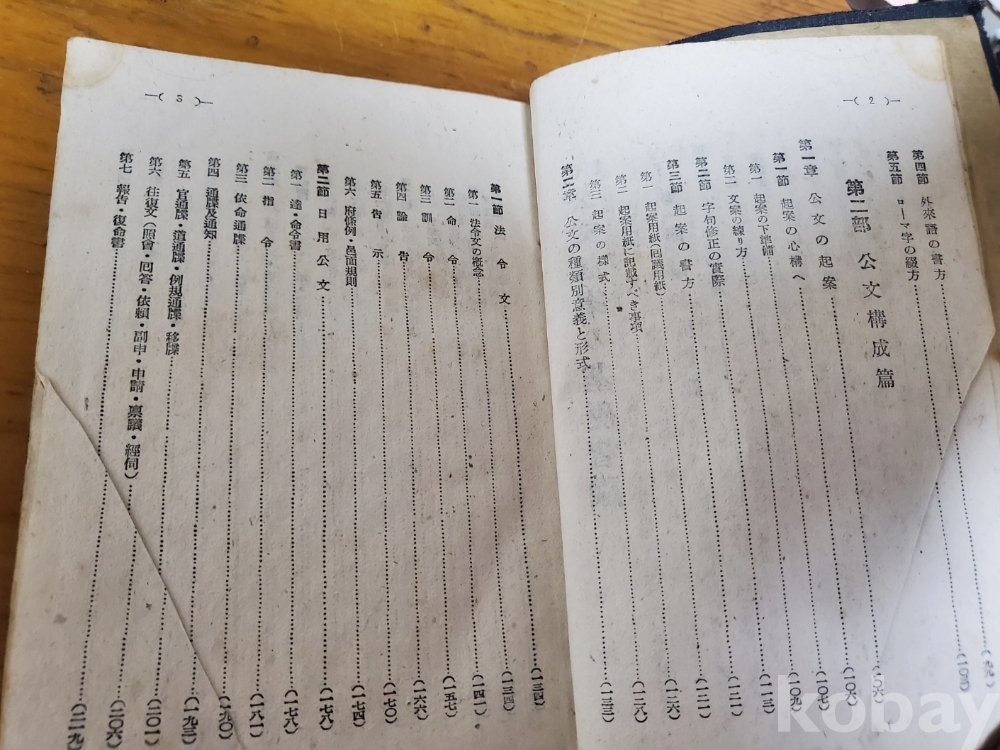 —( 2 )—
第四節 外來語の書方
第五節 ローマ字の綴方
第二部 公文構成篇
第一章 公文の起案……(一〇六)
第一節 起案の心構へ……(一〇六)
第一 起案の下準備……(一〇七)
第二 文案の練り方……(一〇九)
第二節 字句修正の實際
第三節 起案の書方……(一二一)
第一 起案用紙(回議用紙)……(一二一)
第二 起案用紙に記載すべき事項……(一二六)
第三 起案の樣式……(一二八)
第二章 公文の種類別意義と形式……(一三三)
—( 3 )—
第一節 法令文……(一三四)
第一 法令文の概念……(一三四)
第二 命令……(一四一)
第三 訓令……(一五七)
第四 諭告……(一六六)
第五 告示……(一七〇)
第六 府條例・邑面規則……(一七四)
第二節 日用公文……(一七八)
第一 達・命令書……(一七八)
第二 指令……(一八一)
第三 依命通牒……(一九〇)
第四 通牒及通知……(一九三)
第五 官通牒・道通牒・例規通牒・移牒……(二〇一)
第六 往復文(照會・回答・依賴・副申・申請・稟議・經伺)……(二〇六)
第七 報告・復命書……(二一九)
kobay